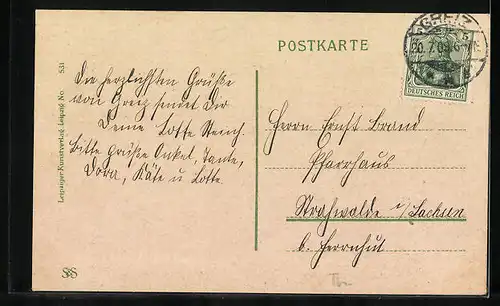 POSTKARTE
GREIZ
20.7.09.6-7N
DEUTSCHES REICH
Die herzlichsten Grüße
von Greiz sendet Dir
Deine Lotte
Bitte grüße Onkel, Tante,
Dora, Käte u Lotte
Herrn Ernst Brand
Pfarrhaus
Strahwalde i/Sachsen
b. Herrnhut
Leipziger Kunstverlag Leipzig No. 531
S&S